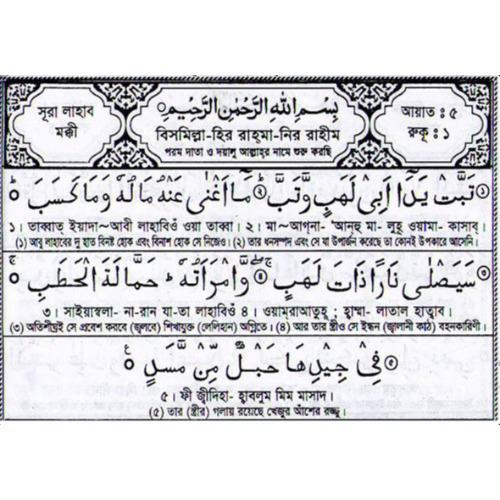 সূরা লাহাব
মক্কী
بِسْمِ اللهِ الرَّحْمٰنِ الرَّحِيْمِ
বিসমিল্লা-হির রাহ্‌মা-নির রাহীম
পরম দাতা ও দয়ালু আল্লাহ্‌র নামে শুরু করছি
আয়াত : ৫
রুকূ : ১
تَبَّتْ يَدَاۤ اَبِىْ لَهَبٍ وَّتَبَّ ؕ مَاۤ اَغْنٰى عَنْهُ مَالُهٗ وَمَا كَسَبَ ؕ
১। তাব্বাত্‌ ইয়াদা~আবী লাহাবিওঁ ওয়া তাব্বা। ২। মা~আগ্‌না- 'আন্‌হু মা- লুহূ ওয়ামা- কাসাব্‌।
(১) আবু লাহাবের দু হাত বিনষ্ট হোক এবং বিনাশ হোক সে নিজেও। (২) তার ধনসম্পদ এবং সে যা উপার্জন করেছে তা কোনই উপকারে আসেনি।
سَيَصْلٰى نَارًا ذَاتَ لَهَبٍ ۚۖ وَّامْرَاَتُهٗ ؕ حَمَّالَةَ الْحَطَبِ ۚ
৩। সাইয়াস্বলা- না-রান যা-তা লাহাবিওঁ ৪। ওয়াম্‌রাআতুহূ ; হাম্মা- লাতাল হাত্বাব।
(৩) অতিশীঘ্রই সে প্রবেশ করবে (জ্বলবে) শিখাযুক্ত (লেলিহান) অগ্নিতে। (৪) আর তার স্ত্রীও সে ইন্ধন (জ্বালানী কাঠ) বহনকারিণী।
فِىْ جِيْدِهَا حَبْلٌ مِّنْ مَّسَدٍ
৫। ফী জ্বীদিহা- হাবলুম মিম মাসাদ।
(৫) তার (স্ত্রীর) গলায় রয়েছে খেজুর আঁশের রজ্জু।